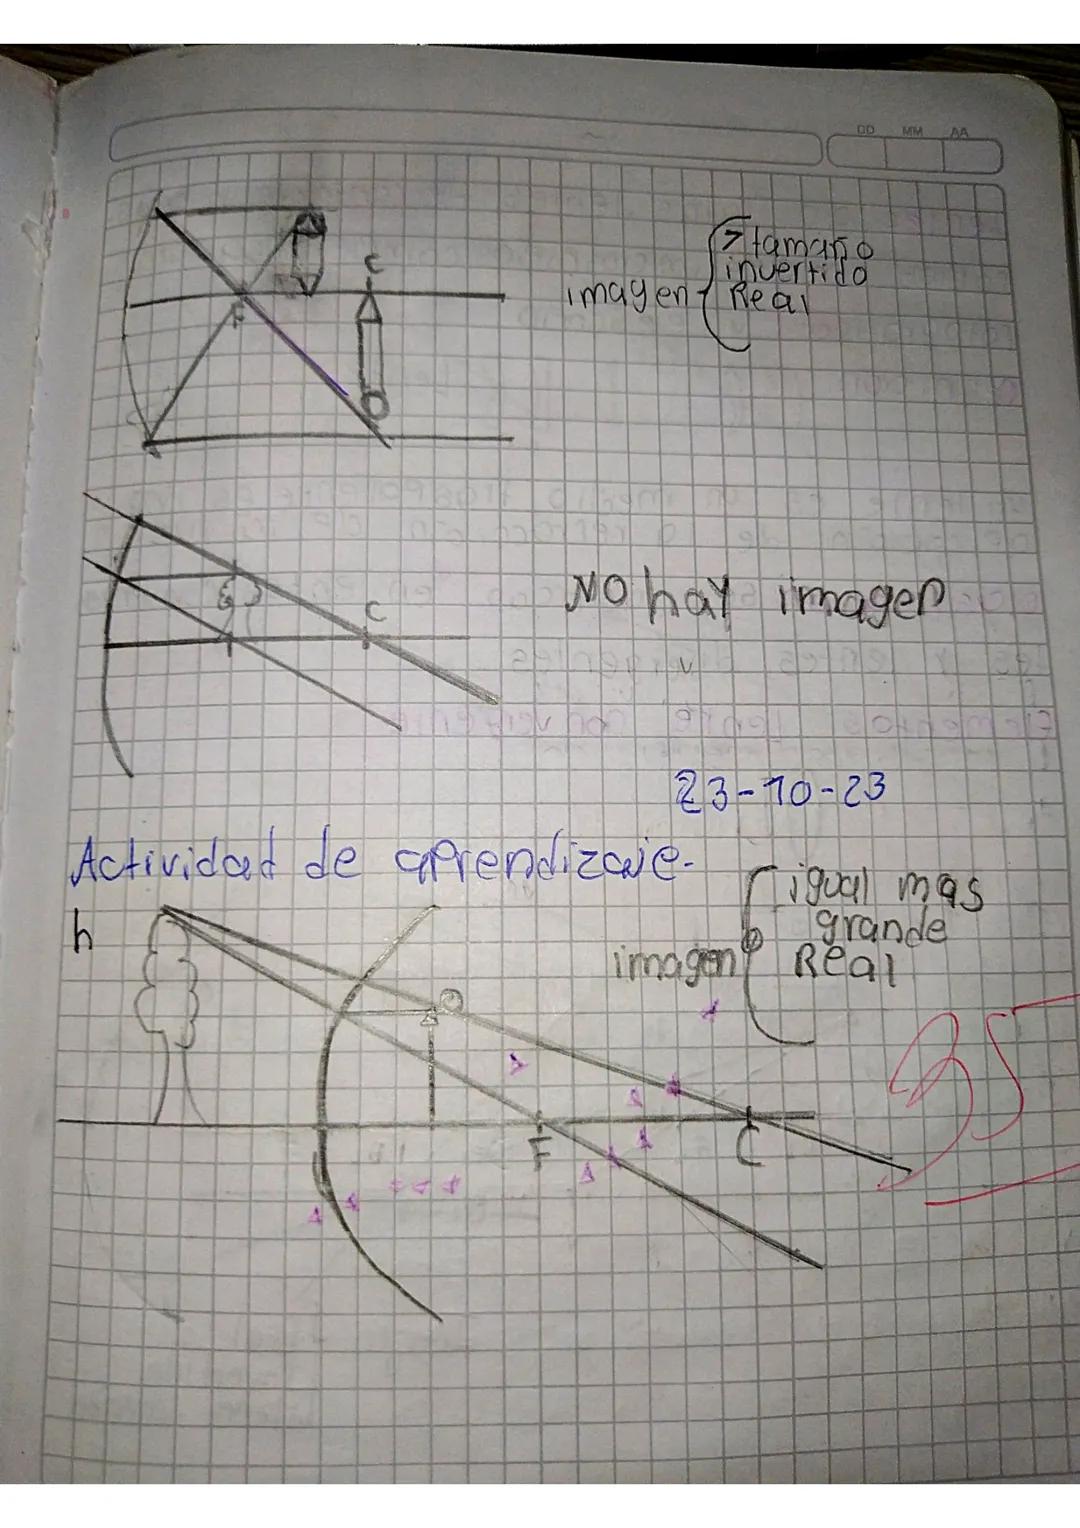 DD MM AA
> tamaño
invertido
imagen Real
C
F
No hay imagen
C
23-10-23
Actividad de aprendizaje.
h
igual mas
grande
imagen Real
F
C